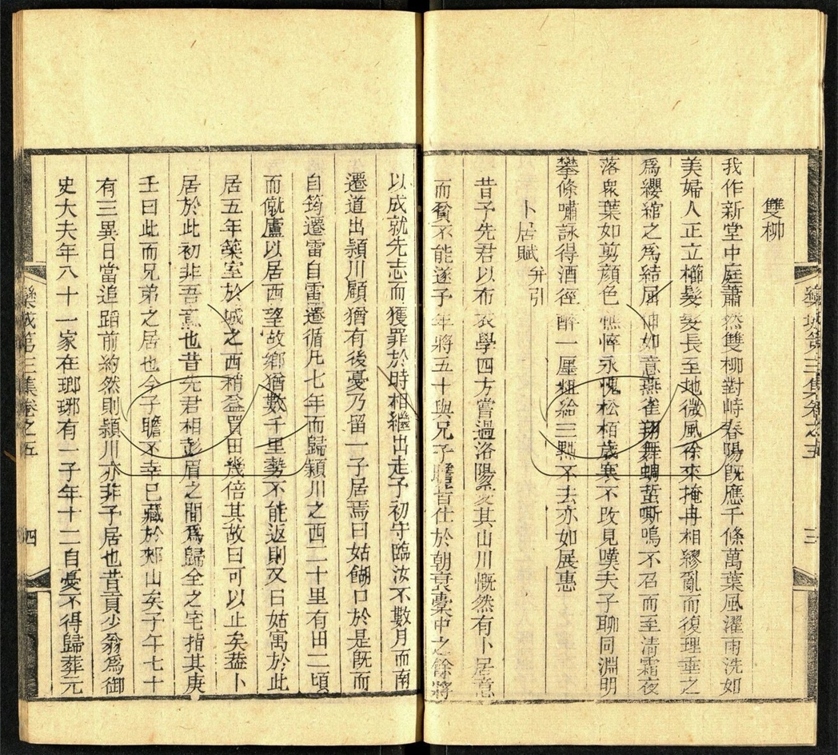 雙柳
我作新堂中庭蕭然雙柳對峙春陽既應千條萬葉風濯雨洗如
美婦人正立櫛髮髮長至地微風徐來掩冉相繆亂而復理垂之
為纓綰之為結屈伸如意燕雀翔舞蜩蜇嘶鳴不召而至清霜夜
落衆葉如剪顏色憔悴永愧松栢歲寒不改見嘆夫子聊同淵明
攀條嘯詠得酒徑醉一廛粗給三黜不去亦如展惠
卜居賦 并引
昔予先君以布衣學四方嘗過洛陽愛其山川慨然有卜居意
而貧不能遂予年將五十與兄子瞻皆仕於朝裒橐中之餘將
樂城第三集卷之五
三
以成就先志而獲罪於時相繼出走予初守臨汝不數月而南
遷道出潁川顧猶有後憂乃留一子居焉曰姑餬口於是既而
自筠遷雷自雷遷循凡七年而歸潁川之西二十里有田二頃
而僦廬以居西望故鄉猶數千里勢不能返則又曰姑寓於此
居五年築室於城之西稍益買田幾倍其故曰可以止矣蓋卜
居於此初非吾意也昔先君相彭眉之間為歸全之宅指其庚
壬曰此而兄弟之居也今子瞻不幸已藏於郟山矣予年七十
有三異日當追蹈前約然則潁川亦非予居也昔貢少翁為御
史大夫年八十一家在瑯琊有一子年十二自憂不得歸葬元
樂城第三集卷之五
四